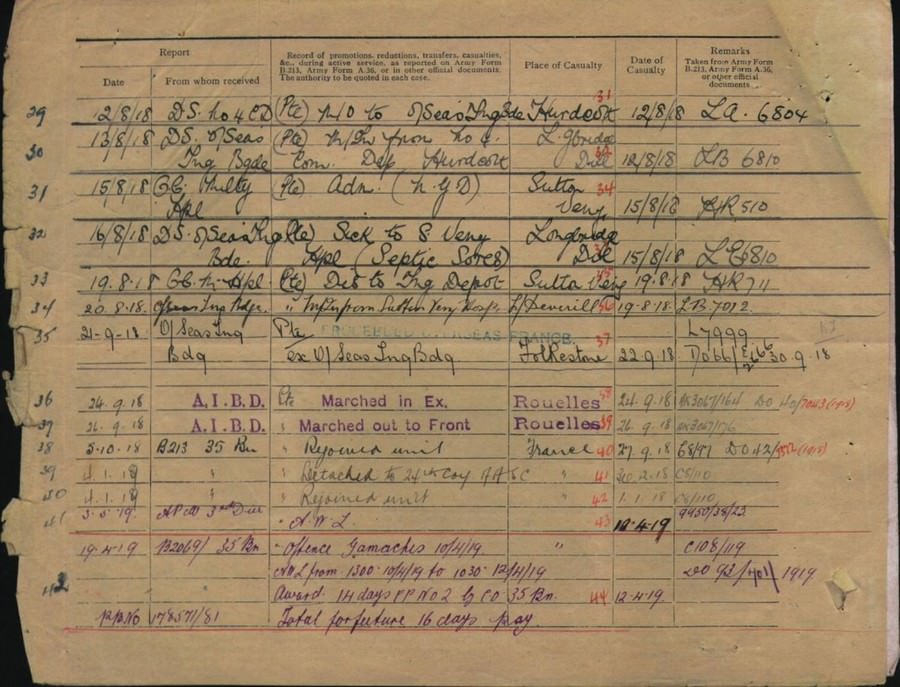 Report
Record of promotions, reductions, transfers, casualties, &c., during active service, as reported on Army Form B.213, Army Form A.36, or in other official documents. The authority to be quoted in each case.
Place of Casualty
Date of Casualty
Remarks Taken from Army Form B.213, Army Form A.36, or other official documents
Date From whom received
31
29 12/8/18 (Pte) to O/Seas Trng Bde Hurdcott 12/8/18 LA. 6804
13/8/18 D.S. O/Seas (Pte) from L'gbridge
30 Trng Bgde Com. Dep Hurdcott Devl 12/8/18 LB 6810
31 15/8/18 (Pte) Adm. Sutton 34
Hpl Veny 15/8/18 HR 510
32 16/8/18 D.S. O/Seas Trng (Pte) Sick to S Veny Longbridge
Bde. Hpl (Septic Sores) 15/8/18 6810
33 19.8.18 Hpl. Pte Dis to Trng Depot Sutton Veny 19.8.18 HR 711
34 20.8.18. " from Sutton Veny Hosp. L/Deverill 36 19.8.18 LB 7012
35 21-9-18 O/Seas Trng Pte PROCEEDED OVERSEAS FRANCE. 37 L7999
Bdg ex O/Seas Trng Bdg Folkestone 22.9.18 30.9.18
36 24.9.18 A.I.B.D. Pte Marched in Ex. Rouelles 38 24.9.18
37 26.9.18 A.I.B.D. " Marched out to Front Rouelles 39 26.9.18
38 5.10.18 B213 35 Bn " Rejoined unit France 40 27.9.18 68/97 DO 42/
39 4.1.19 " " Detached to 24th Coy AASC " 41 30.12.18 C8/110
40 4.1.19 " " Rejoined unit " 42 1.1.18 C8/110
41 3.5.19. APM 3rd Div " A.W.L. 43 12.4.19 9950/38/23
19.4.19 B2069/ 35 Bn " Offence Gamaches 10/4/19 " C108/119
AWL from 1300 10/4/19 to 1030 12/4/19 DO 93/ 1919
42 Award. 14 days FP No 2 by CO 35 Bn. 44 12.4.19.
178571/81 Total forfeiture 16 days pay.